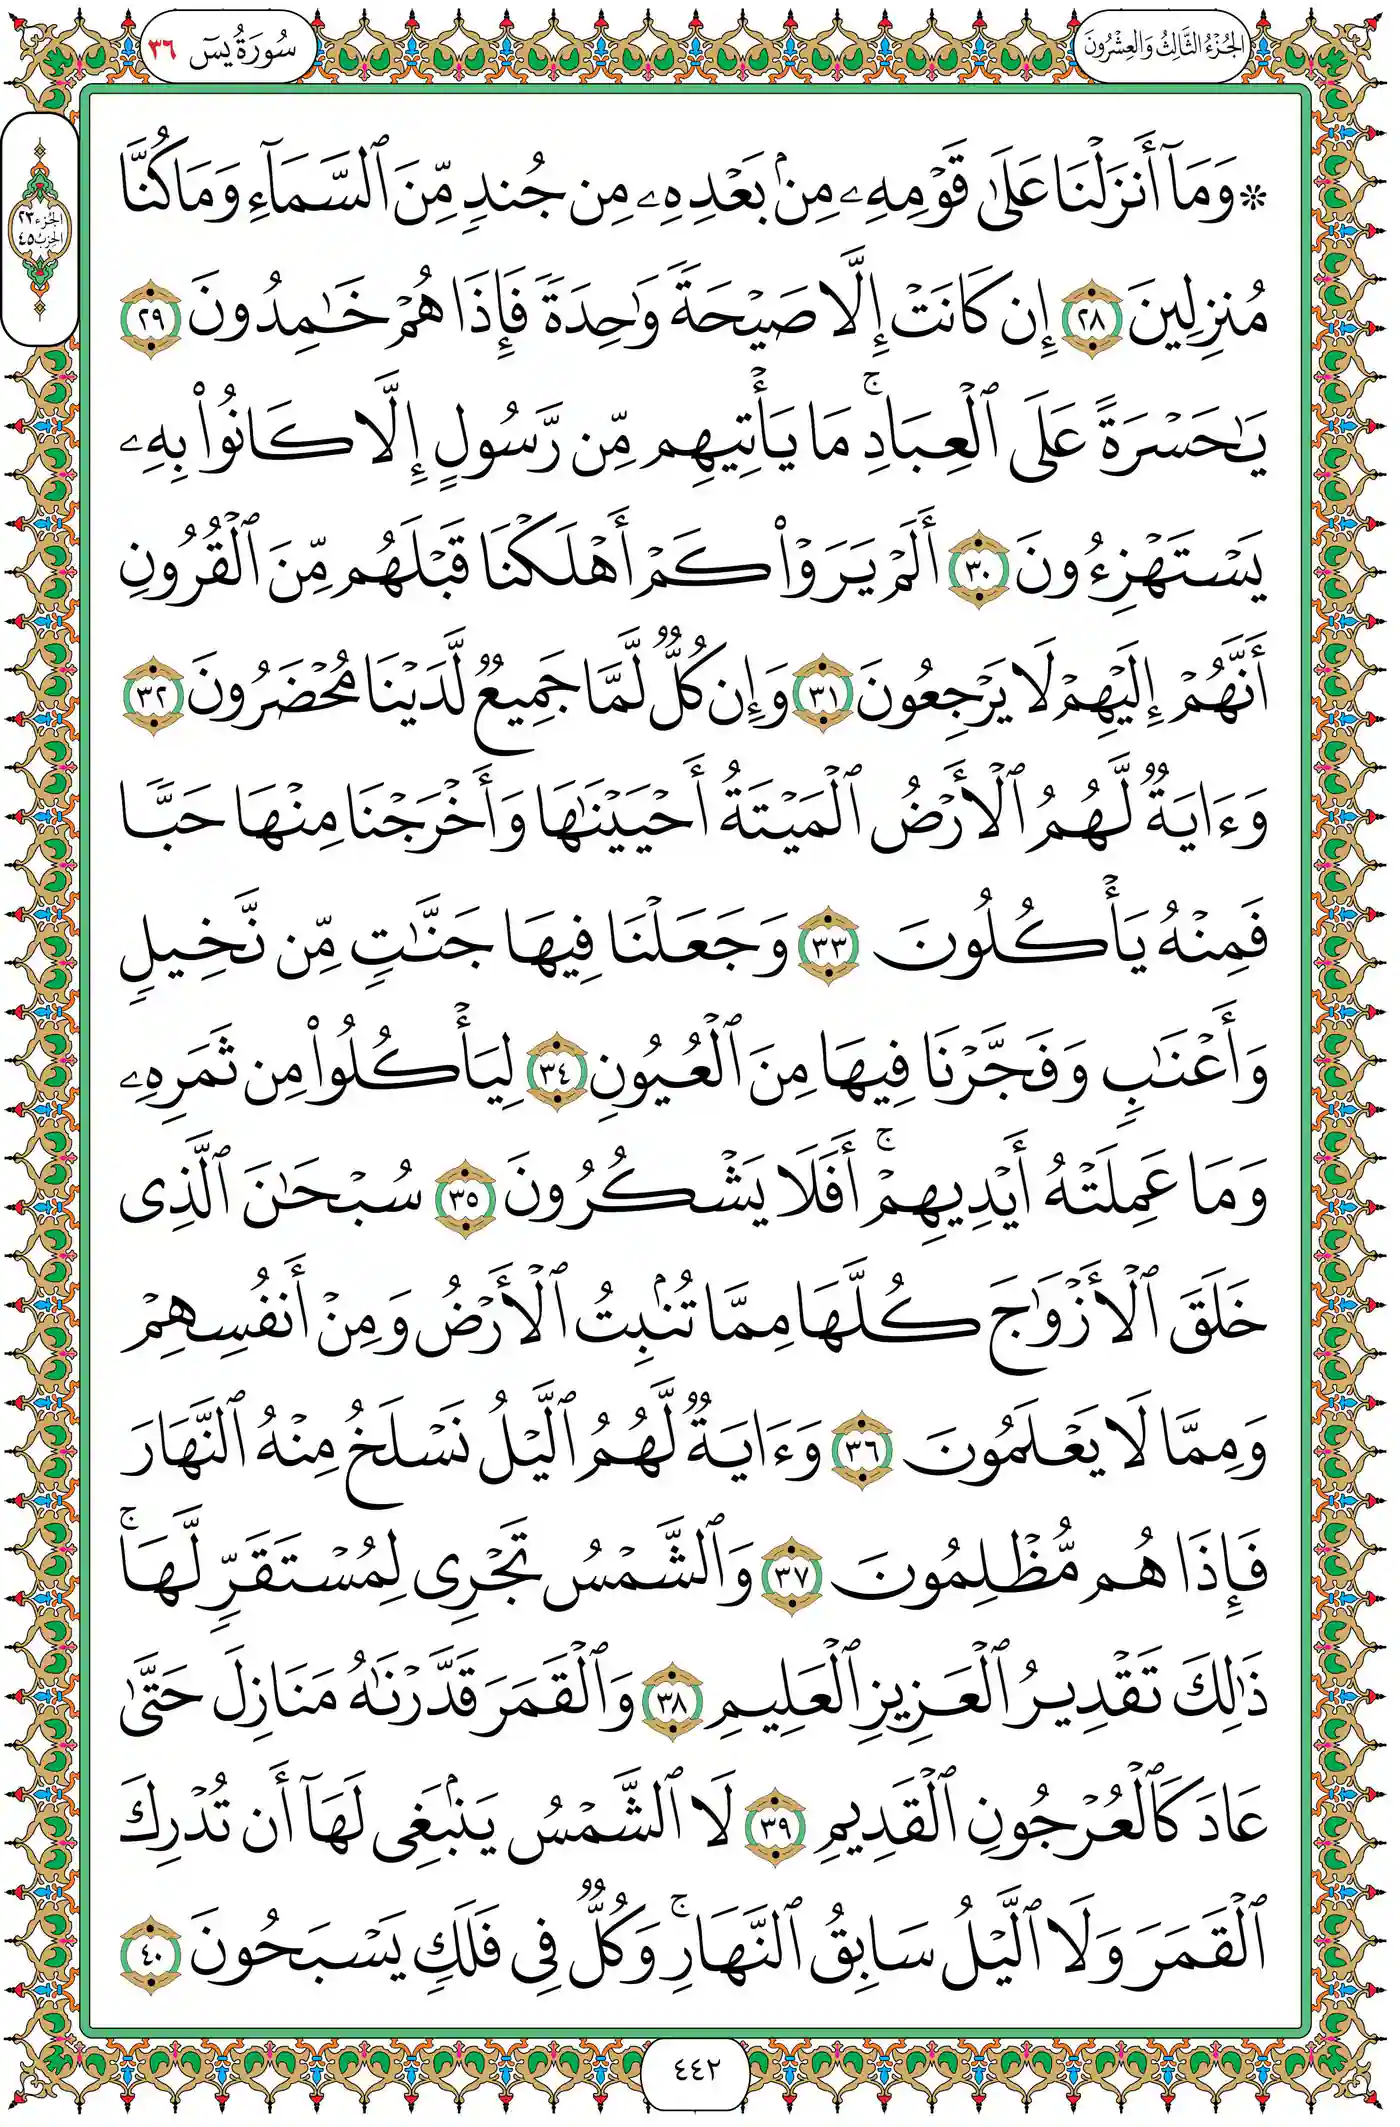 الجُزْءُ الثَّالِثُ وَالعِشْرُونَ
سُورَةُ يسٓ ٣٦
الجزء ٢٣
الحزب ٤٥
۞ وَمَآ أَنزَلۡنَا عَلَىٰ قَوۡمِهِۦ مِنۢ بَعۡدِهِۦ مِن جُندٖ مِّنَ ٱلسَّمَآءِ وَمَا كُنَّا
مُنزِلِينَ ٢٨ إِن كَانَتۡ إِلَّا صَيۡحَةٗ وَٰحِدَةٗ فَإِذَا هُمۡ خَٰمِدُونَ ٢٩
يَٰحَسۡرَةً عَلَى ٱلۡعِبَادِۚ مَا يَأۡتِيهِم مِّن رَّسُولٍ إِلَّا كَانُواْ بِهِۦ
يَسۡتَهۡزِءُونَ ٣٠ أَلَمۡ يَرَوۡاْ كَمۡ أَهۡلَكۡنَا قَبۡلَهُم مِّنَ ٱلۡقُرُونِ
أَنَّهُمۡ إِلَيۡهِمۡ لَا يَرۡجِعُونَ ٣١ وَإِن كُلّٞ لَّمَّا جَمِيعٞ لَّدَيۡنَا مُحۡضَرُونَ ٣٢
وَءَايَةٞ لَّهُمُ ٱلۡأَرۡضُ ٱلۡمَيۡتَةُ أَحۡيَيۡنَٰهَا وَأَخۡرَجۡنَا مِنۡهَا حَبّٗا
فَمِنۡهُ يَأۡكُلُونَ ٣٣ وَجَعَلۡنَا فِيهَا جَنَّٰتٖ مِّن نَّخِيلٖ
وَأَعۡنَٰبٖ وَفَجَّرۡنَا فِيهَا مِنَ ٱلۡعُيُونِ ٣٤ لِيَأۡكُلُواْ مِن ثَمَرِهِۦ
وَمَا عَمِلَتۡهُ أَيۡدِيهِمۡۚ أَفَلَا يَشۡكُرُونَ ٣٥ سُبۡحَٰنَ ٱلَّذِي
خَلَقَ ٱلۡأَزۡوَٰجَ كُلَّهَا مِمَّا تُنۢبِتُ ٱلۡأَرۡضُ وَمِنۡ أَنفُسِهِمۡ
وَمِمَّا لَا يَعۡلَمُونَ ٣٦ وَءَايَةٞ لَّهُمُ ٱلَّيۡلُ نَسۡلَخُ مِنۡهُ ٱلنَّهَارَ
فَإِذَا هُم مُّظۡلِمُونَ ٣٧ وَٱلشَّمۡسُ تَجۡرِي لِمُسۡتَقَرّٖ لَّهَاۚ
ذَٰلِكَ تَقۡدِيرُ ٱلۡعَزِيزِ ٱلۡعَلِيمِ ٣٨ وَٱلۡقَمَرَ قَدَّرۡنَٰهُ مَنَازِلَ حَتَّىٰ
عَادَ كَٱلۡعُرۡجُونِ ٱلۡقَدِيمِ ٣٩ لَا ٱلشَّمۡسُ يَنۢبَغِي لَهَآ أَن تُدۡرِكَ
ٱلۡقَمَرَ وَلَا ٱلَّيۡلُ سَابِقُ ٱلنَّهَارِۚ وَكُلّٞ فِي فَلَكٖ يَسۡبَحُونَ ٤٠
٤٤٢